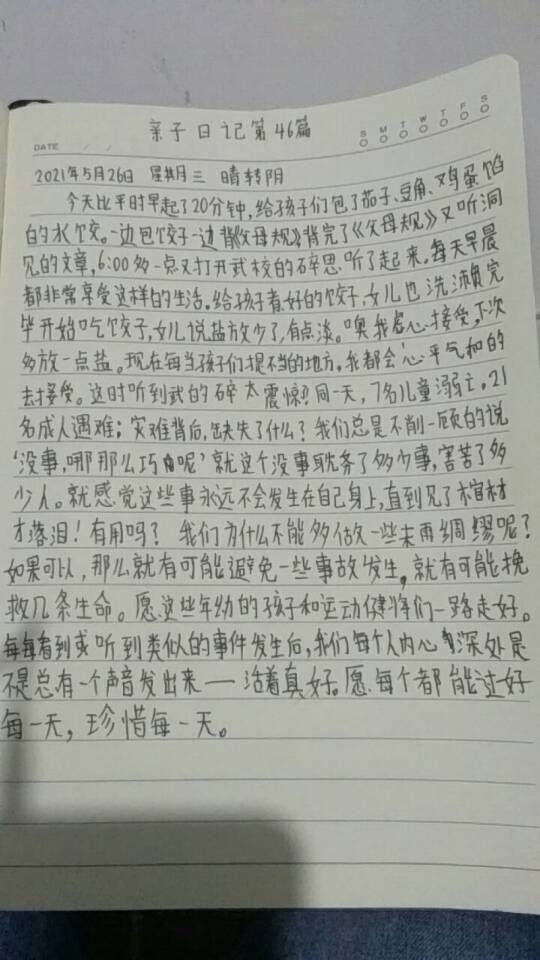 亲子日记第46篇
S M T W T F S
DATE
2021年5月26日 星期三 晴转阴
今天比平时早起了20分钟,给孩子们包了茄子、豆角、鸡蛋馅
的水饺。一边包饺子一边背《父母规》,背完了《父母规》又听洞
见的文章,6:00多一点又打开武校的碎思听了起来。每天早晨
都非常享受这样的生活。给孩子煮好的饺子,女儿也洗漱完
毕开始吃饺子,女儿说盐放少了,有点淡。噢我虚心接受,下次
多放一点盐。现在每当孩子们提不当的地方。我都会心平气和的
去接受。这时听到武的碎太震惊了同一天,7名儿童溺亡。21
名成人遇难;灾难背后,缺失了什么?我们总是不削一顾的说
‘没事,哪那么巧呢’就这个没事耽务了多少事,害苦了多
少人。就感觉这些事永远不会发生在自己身上,直到见了棺材
才落泪!有用吗?我们为什么不能多做一些未雨绸缪呢?
如果可以,那么就有可能避免一些事故发生,就有可能挽
救几条生命。愿这些年幼的孩子和运动健将们一路走好。
每每看到或听到类似的事件发生后,我们每个人内心的深处是
不是总有一个声音发出来——活着真好。愿每个都能过好
每一天,珍惜每一天。